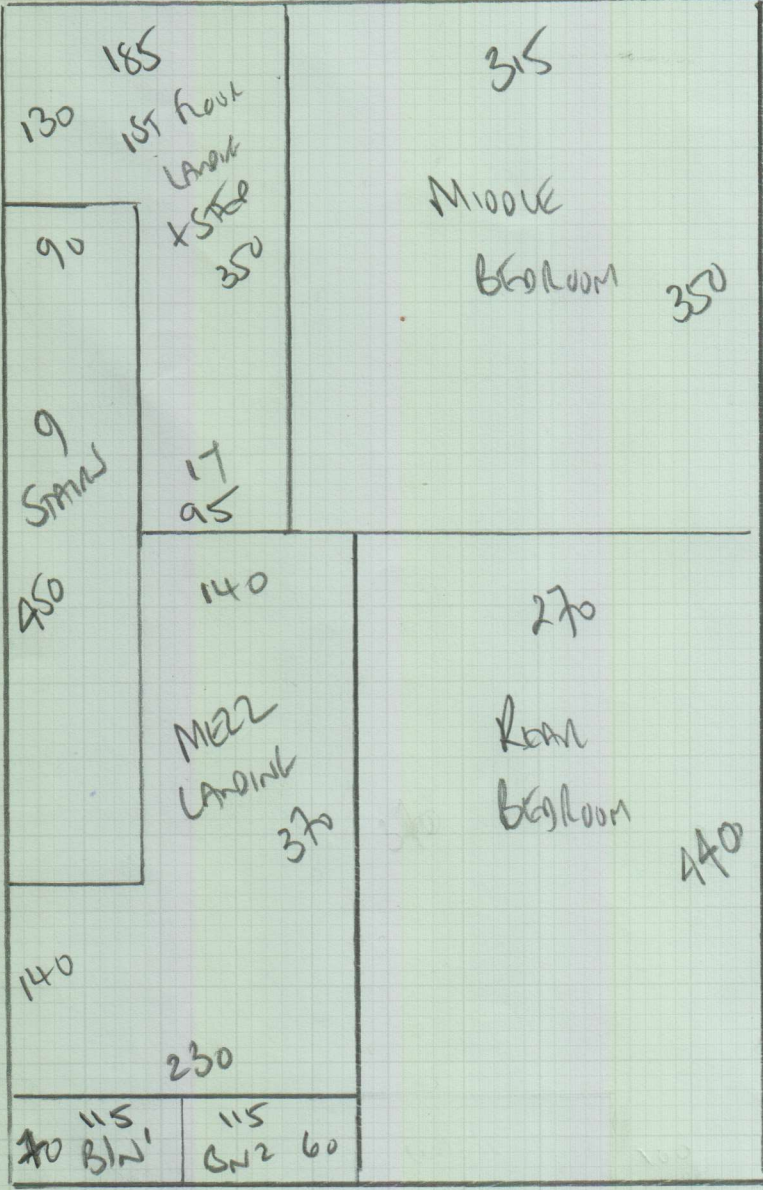 185
130
1ST FLOOR
LANDING
+ STEP
350
315
MIDDLE
BEDROOM
350
90
9
STAIRS
450
17
95
140
MEZZ
LANDING
370
270
REAR
BEDROOM
440
140
230
115
BIN1
115
BN2 60